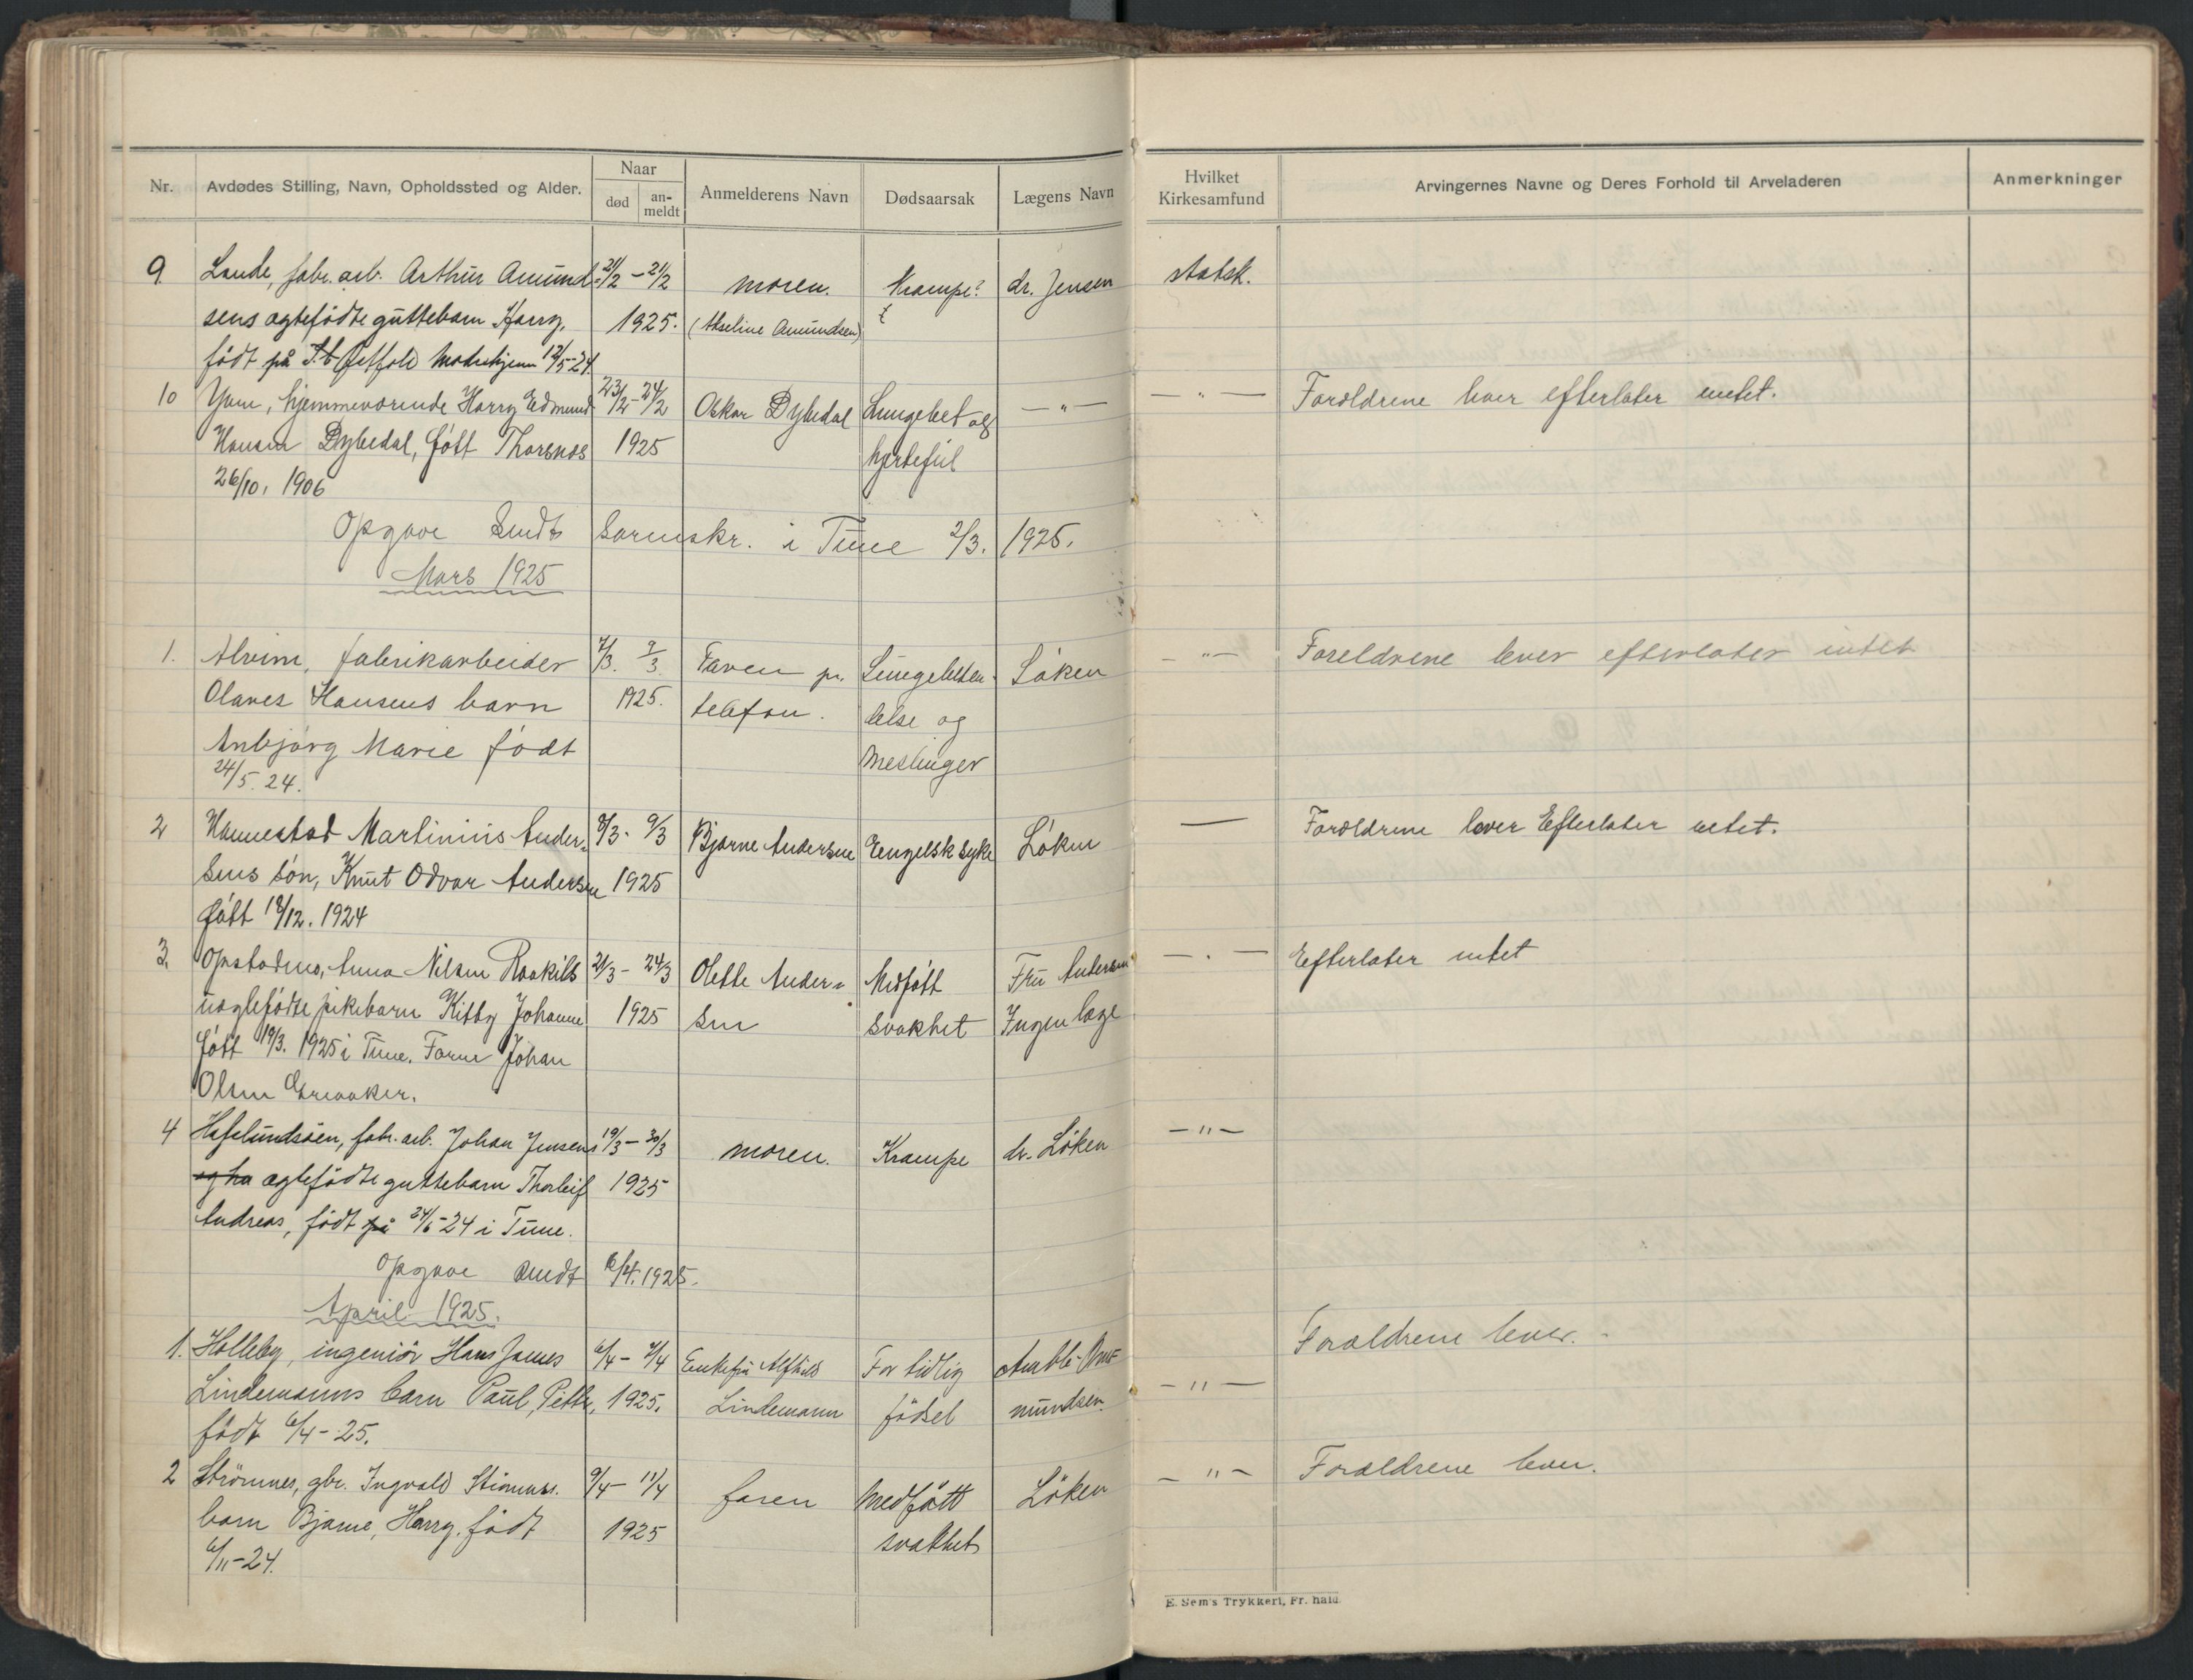 Nr.
Avdødes Stilling, Navn, Opholdssted og Alder.
Naar
død
an-
meldt
Anmelderens Navn
Dødsaarsak
Lægens Navn
Hvilket
Kirkesamfund
Arvingernes Navne og Deres Forhold til Arveladeren
Anmerkninger
9. Lande, fabr. arb. Arthur Amund- 21/2 - 21/2 moren. Krampe? dr. Jensen statsk.
sens ægtefødte guttebarn Harry, 1925. (Akseline Amundsen)
født på Østfold Mødrehjem 12/5-24.
10 Yven, hjemmeværende Harry Edmund 23/2 - 24/2 Oskar Dybedal Lungebet og - " - - " - Forældrene lever efterlater intet.
Hansen Dybedal, født Thorsnæs 1925 hjertefeil
26/10, 1906
Opgave sendt Sorenskr. i Tune 2/3. 1925.
Mars 1925
1. Alvim, fabrikarbeider 7/3. 9/3 Faren pr. Lungebeten- Löken - " - Foreldrene lever efterlater intet
Olaves Hansens barn 1925. telefon. delse og
Anbjørg Marie født Meslinger
24/5. 24.
2 Hannestad Martinius Ander- 8/3 - 9/3 Bjarne Andersen Eengelsk syke Löken — Forældrene lever Efterlater intet.
sens sön, Knut Odvar Andersen 1925
født 18/12. 1924
3. Opstadmo, Anna Nilsen Roakilds 21/3 - 24/3 Olette Ander- Medfött Fru Andersen - " - Efterlater intet
uægtefödte pikebarn Kitty Johanne 1925 sen svakhet Ingen læge
født 19/3. 1925 i Tune. Faren Johan
Olsen Greaaker.
4 Hafslundsöen, fabr. arb. Johan Jensens 19/3 - 30/3 moren. Krampe dr. Löken - " -
ægtefödte guttebarn Thorleif 1925
Andreas, födt på 24/6-24 i Tune.
Opgave sendt 6/4. 1925.
April 1925.
1. Holleby, ingeniör Hans James 6/4 - 7/4 Enkefru Alfhild For tidlig
Lindemanns barn Paul, Petter, 1925. Lindemann födsel mundsen. - " - Forældrene lever.
födt 6/4-25.
2 Strömnes, gbr. Ingvald Strömnes. 9/4 - 11/4 faren Medfött Löken - " - Forældrene lever.
barn Bjarne, Harry, födt 1925 svakhet
6/11-24.
E. Sem's Trykkeri, Fr. hald.